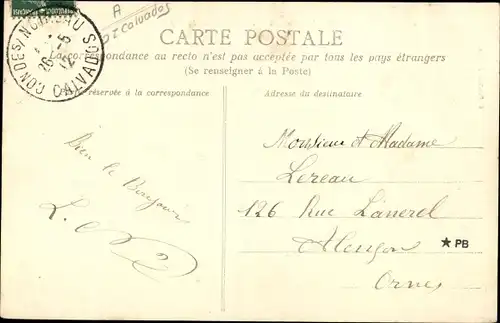 A
Calvados
CONDÉ S/NOIREAU
26-5
12
CALVADOS
CARTE POSTALE
La correspondance au recto n'est pas acceptée par tous les pays étrangers
(Se renseigner à la Poste)
réservée à la correspondance
Adresse du destinataire
Bien le Bonjour
Monsieur et Madame
Lereau
126 Rue
Alençon
Orne
★ PB